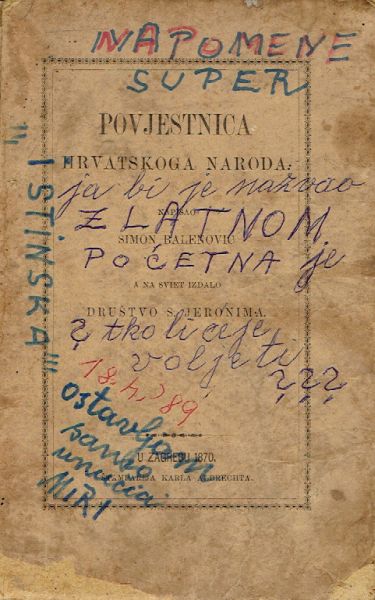 NAPOMENE
SUPER
POVJESTNICA
HRVATSKOGA NARODA.
ja bi je nazvao
NAPISAO
ZLATNOM
SIMON BALENOVIĆ
POČETNA je
A NA SVIET IZDALO
DRUŠTVO S. JERONIMA.
? tko li će je
voljeti
???
18.4.89
"' ISTINSKA "'
Ostavljam
unučici
MIRI
U ZAGREBU 1870.
ŠTAMPARIJA KARLA ALBRECHTA.